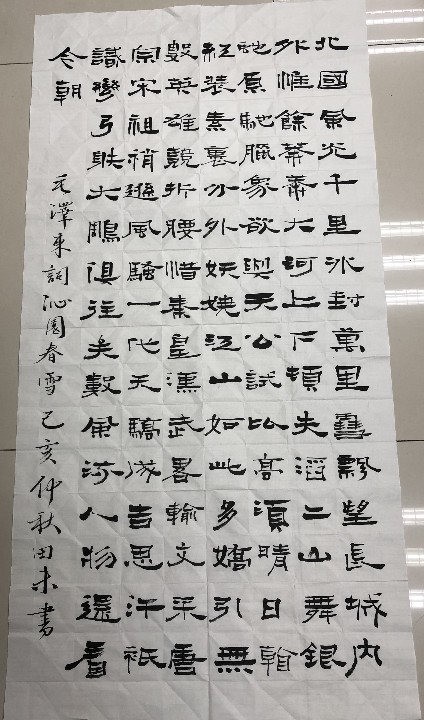 北國風光千里冰封萬里雪飄望長城內
外惟餘莽莽大河上下頓失滔二山舞銀
虵原馳臘象欲與天公試比高須晴日看
紅裝素裹分外妖嬈江山如此多嬌引無
數英雄競折腰惜秦皇漢武畧輸文采唐
宗宋祖稍遜風騷一代天驕成吉思汗祇
識彎弓射大鵰俱往矣數風流人物還看
今朝
毛澤東詞沁園春雪己亥仲秋田未書